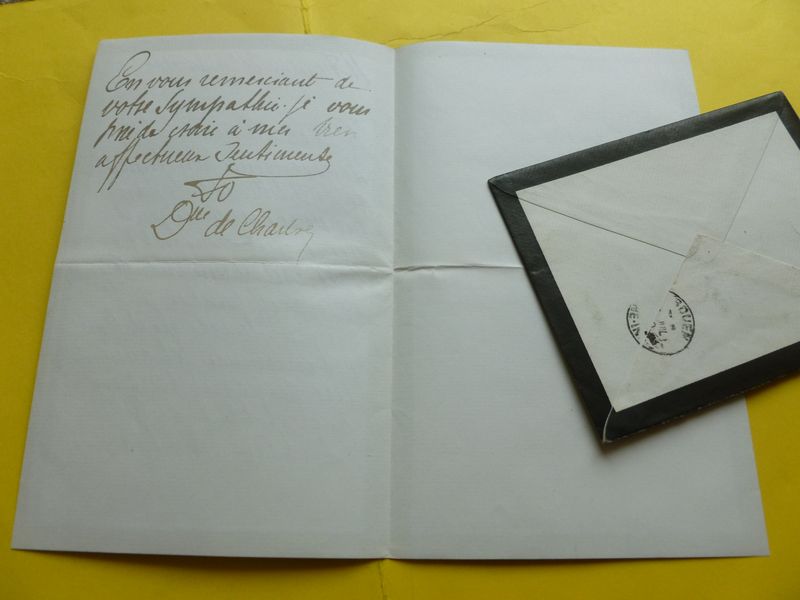 En vous remerciant de
votre Sympathie. je vous
prie de croire à mes bien
affectueux Sentiments
Dsse de Chartres
ROUEN